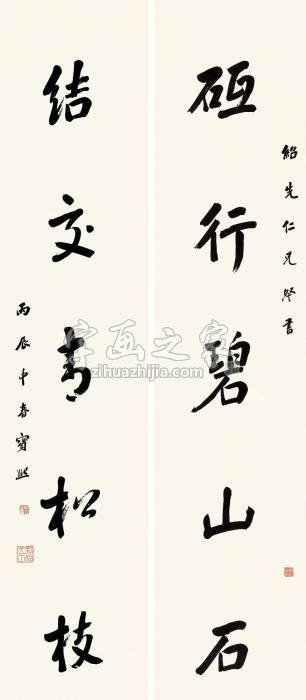 紹先仁兄書
砥行碧山石
結交青松枝
丙辰中春寶熙
字画之家
zihuazhijia.com